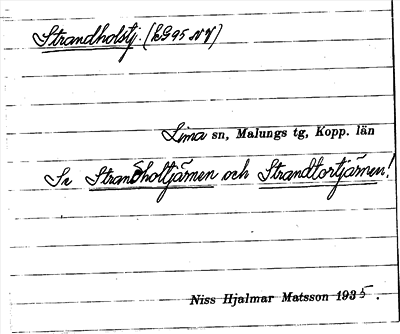 Strandholstj. (kG95 NV)
Lima sn, Malungs tg, Kopp. län
Se Strandholtjärnen och Strandtortjärnen!
Niss Hjalmar Matsson 1935.